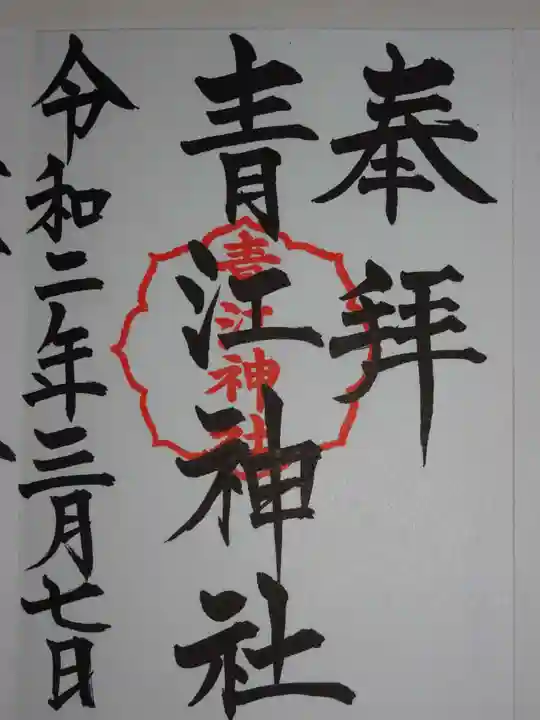 奉拝
青江神社
青江神社
令和二年三月七日